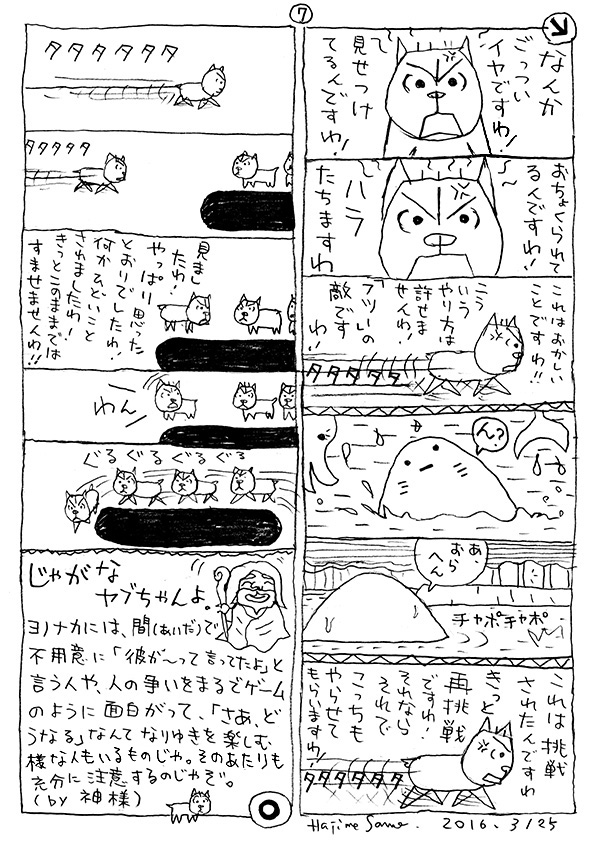 7
なんか
ごっつい
イヤですわ!
見せつけ
てるんですわ!
おちょくられて
るんですわ!
ハラ
たちますわ
これはおかしい
ことですわ!!
こう
いう
やり方は
許せま
せんわ!
フツいの
敵です
わ!
タタタタタ
ん?
あ、
おら
へん
チャポチャポ
これは挑戦
されたんですわ
きっと
再挑戦
ですわ!
それなら
それで
こっちも
やらせて
もらいますわ!
タタタタタタ
Hajime Same. 2016. 3/25
タタタタタタ
タタタタタ
見まし
たわ!
やっぱり思った
とおりでしたわ!
何かひどいこと
されましたわ!
きっとこのままでは
すませませんわ!!
わん
ぐるぐるぐるぐる
じゃがな
ヤブちゃんよ。
ヨノナカには、間(あいだ)で
不用意に「彼が〜って言ってたよ」と
言う人や、人の争いをまるでゲーム
のように面白がって、「さあ、ど
うなる」なんてなりゆきを楽しむ
様な人もいるものじゃ。そのあたりも
充分に注意するのじゃぞ。
(by 神様)